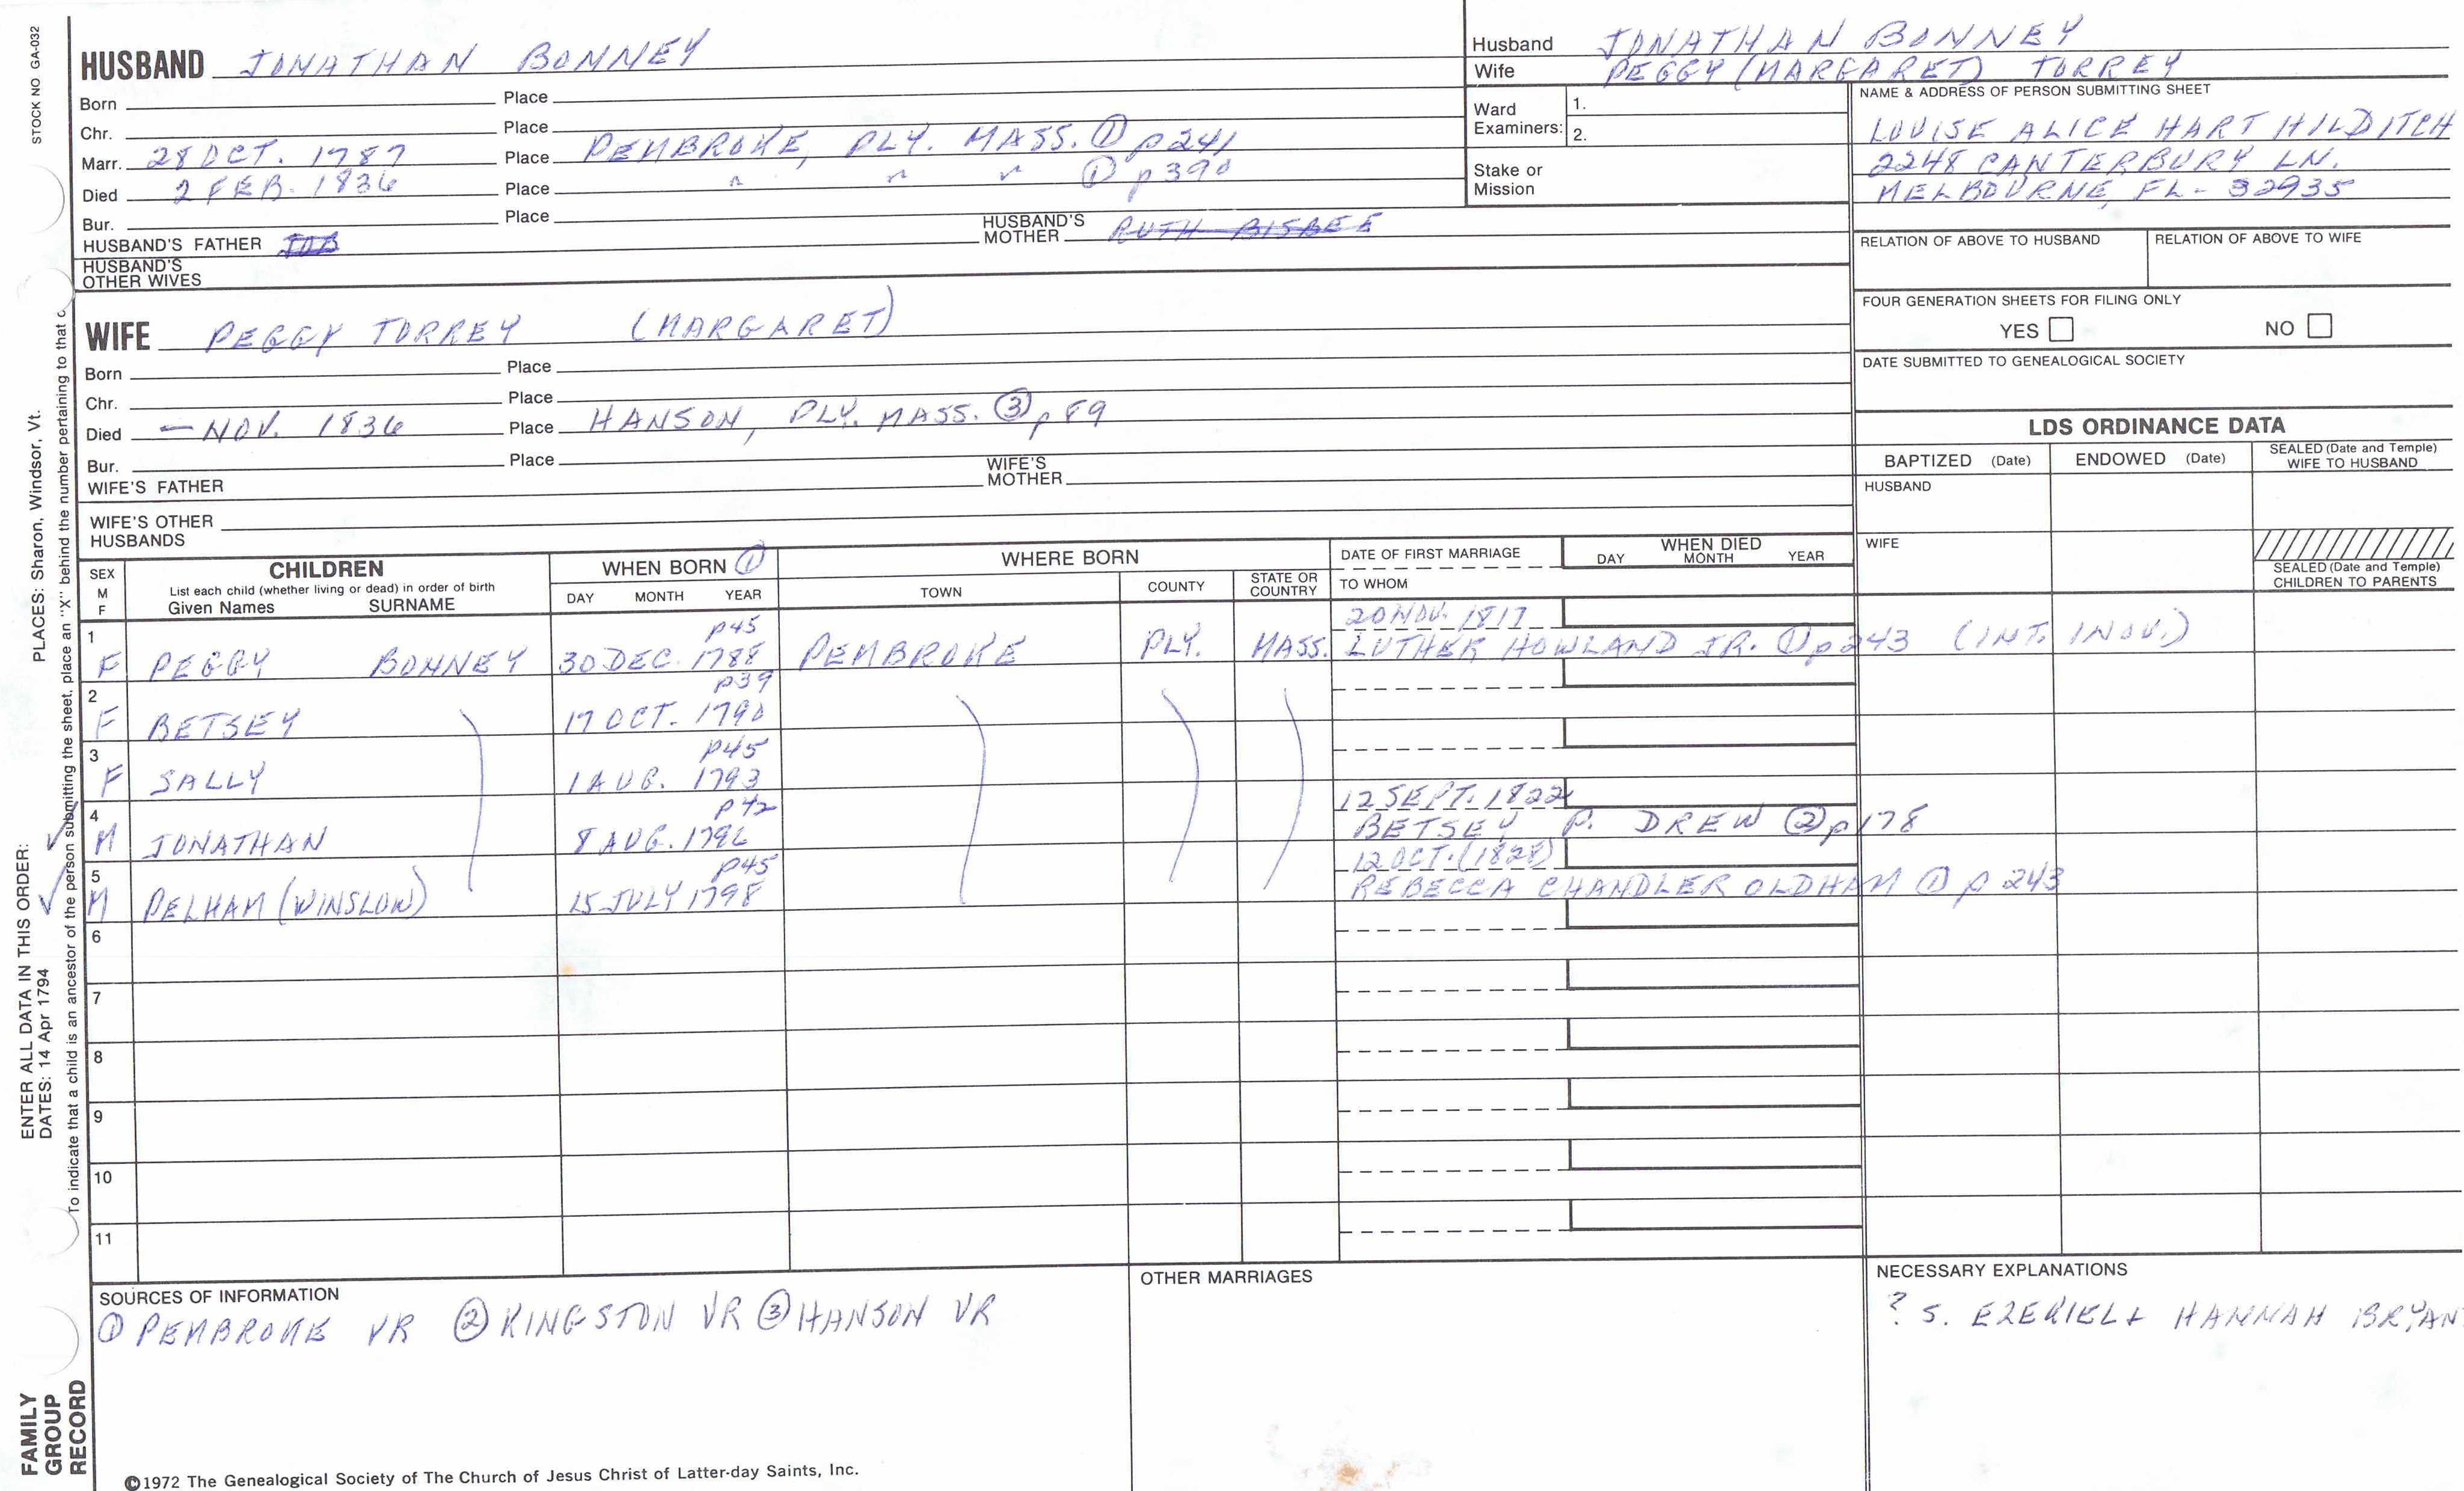 STOCK NO GA-032
HUSBAND JONATHAN BONNEY
Born Place
Chr. Place
Marr. 28 OCT. 1787 Place PEMBROKE, PLY. MASS. ① p241
Died 2 FEB. 1836 Place " " " ① p390
Bur. Place
HUSBAND'S FATHER JOB HUSBAND'S MOTHER RUTH BISBEE
HUSBAND'S OTHER WIVES
Husband JONATHAN BONNEY
Wife PEGGY (MARGARET) TORREY
Ward Examiners: 1.
2.
Stake or Mission
NAME & ADDRESS OF PERSON SUBMITTING SHEET
LOUISE ALICE HART HILDITCH
2248 CANTERBURY LN.
MELBOURNE, FL - 32935
RELATION OF ABOVE TO HUSBAND RELATION OF ABOVE TO WIFE
FOUR GENERATION SHEETS FOR FILING ONLY
YES NO
DATE SUBMITTED TO GENEALOGICAL SOCIETY
WIFE PEGGY TORREY (MARGARET)
Born Place
Chr. Place
Died — NOV. 1836 Place HANSON, PLY. MASS. ③ p89
Bur. Place
WIFE'S FATHER WIFE'S MOTHER
WIFE'S OTHER HUSBANDS
LDS ORDINANCE DATA
BAPTIZED (Date) ENDOWED (Date) SEALED (Date and Temple) WIFE TO HUSBAND
HUSBAND
WIFE
SEALED (Date and Temple) CHILDREN TO PARENTS
SEX M F
CHILDREN
List each child (whether living or dead) in order of birth
Given Names SURNAME
WHEN BORN ①
DAY MONTH YEAR
WHERE BORN
TOWN COUNTY STATE OR COUNTRY
DATE OF FIRST MARRIAGE
TO WHOM
WHEN DIED
DAY MONTH YEAR
1 p45 20 NOV. 1817
F PEGGY BONNEY 30 DEC. 1788 PEMBROKE PLY. MASS. LUTHER HOWLAND JR. ① p243 (INT. 1 NOV.)
2 p39
F BETSEY 17 OCT. 1790
3 p45
F SALLY 1 AUG. 1793
4 p42 12 SEPT. 1822
M JONATHAN 8 AUG. 1796 BETSEY P. DREW ② p178
5 p45 12 OCT. (1828)
M PELHAM (WINSLOW) 15 JULY 1798 REBECCA CHANDLER OLDHAM ① p 243
6
7
8
9
10
11
SOURCES OF INFORMATION
① PEMBROKE VR ② KINGSTON VR ③ HANSON VR
OTHER MARRIAGES
NECESSARY EXPLANATIONS
? S. EZEKIEL + HANNAH BRYAN
©1972 The Genealogical Society of The Church of Jesus Christ of Latter-day Saints, Inc.
FAMILY GROUP RECORD
ENTER ALL DATA IN THIS ORDER:
DATES: 14 Apr 1794
PLACES: Sharon, Windsor, Vt.
To indicate that a child is an ancestor of the person submitting the sheet, place an "X" behind the number pertaining to that c